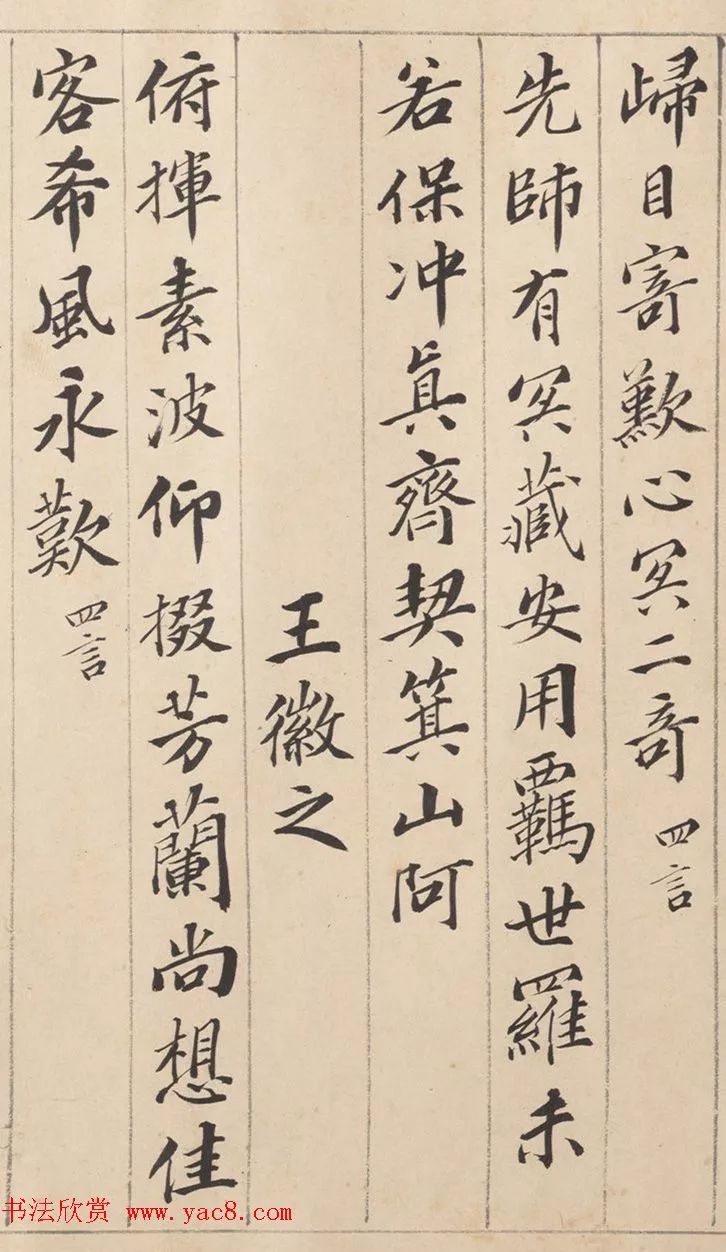 歸目寄歎心冥二奇 四言
先師有冥藏安用羈世羅未
若保沖真齊契箕山阿
王徽之
俯揮素波仰掇芳蘭尚想佳
客希風永歎 四言
书法欣赏 www.yac8.com